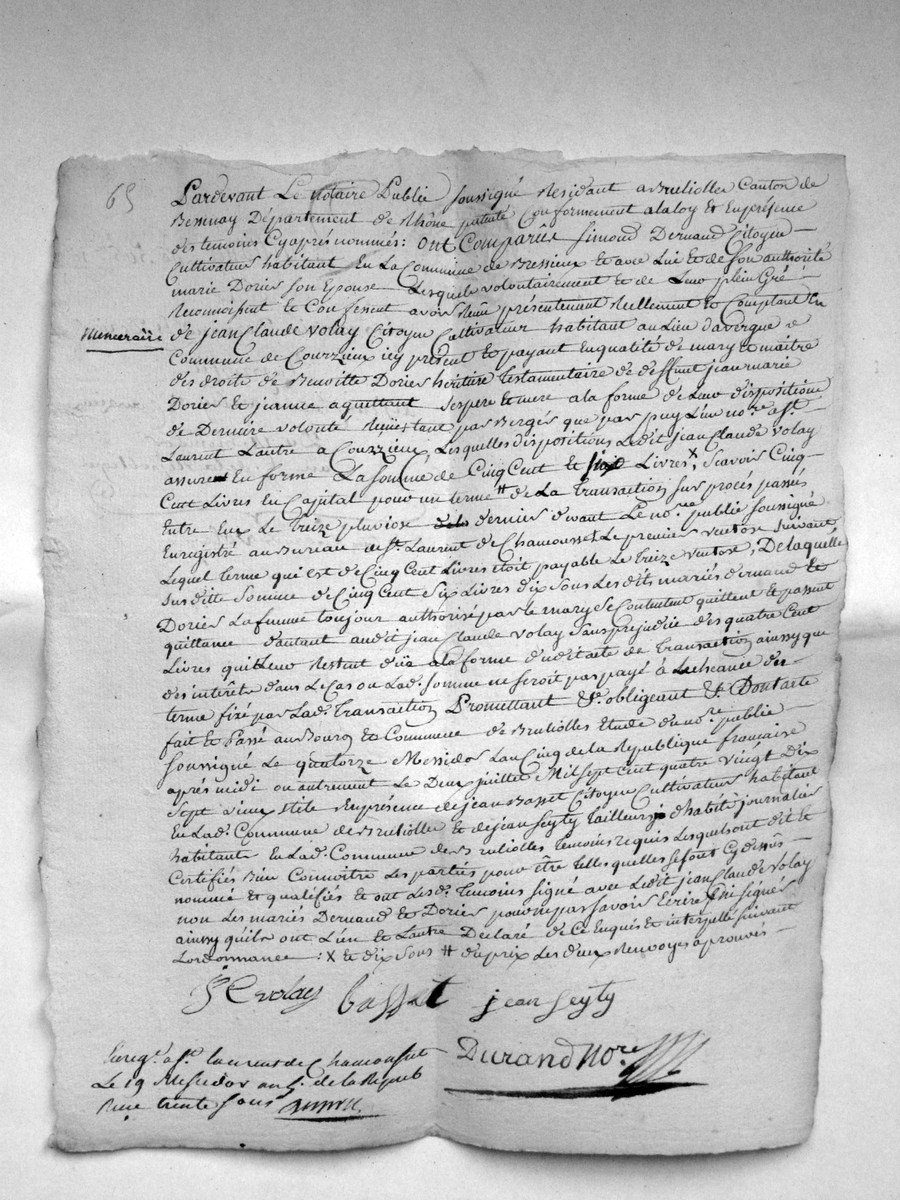 65
Pardevant Le Notaire Public Soussigné Residant a Brullioles Canton de
Bessenay Département de Rhône patenté Conformement a la loy et En présence
des temoins Cy aprés nommés : Ont Comparûs Simond Dernaud Citoyen
Cultivateur habitant En La Commune de Bressieux et avec Lui et de son authorité
marie Dorier son Epouse Lesquels volontairement et de Leur plein Gré
Reconnoissent et Confessent avoir Reçu présentement Réellement et Comptant
Numeraire
de jean Claude Volay Citoyen Cultivateur habitant au Lieu d'avergue
Commune de Courzieux icy present et payant En qualité de mary et maître
des droits de Benoitte Dorier heritiere testamentaire de deffunt jean marie
Dorier et jeanne ses pere et mere a la forme de Leur dispositions
de Derniere volonté Reçües tant par Bergés que par puy L'un no.re a S.t
Laurent Lautre a Courzieux, Lesquelles dispositions Ledit jean Claude Volay
assurent En forme La somme de Cinq Cent et six Livres X, Scavoir Cinq
Cent Livres En Capital pour un terme # de La Transaction sur procés passés
Entre Eux Le Treize pluviose dernier devant Le no.re public soussigné
Enregistré au Bureau de S.t Laurent de Chamousset Le premier ventose suivant
Lequel terme qui est de Cinq Cent Livres étoit payable Le Treize ventose, De laquelle
susditte somme de Cinq Cent Six Livres dix sous Les dits mariés dernaud et
Dorier La femme toujour authorisé par le mary se Contentent quittent et passent
quittance d'autant audit jean Claude Volay sans prejudice des quatre Cent
Livres qui Leur Restent düs a la forme dudit acte de Transaction ainsy que
des interêts dans Le Cas ou Lad. somme ne seroit pas payé à L'echeance du
terme fixé par Lad. Transaction Promettant &c. obligeant &c. Dont acte
fait et Passé au Bourg et Commune de Brullioles Etude du no.re public
soussigné Le quatorze Messidor Lan Cinq de la Republique française
aprés midi ou autrement Le Deux juillet Mil sept cent quatre vingt Dix
sept vieux stile En présence de jean Basset Citoyen Cultivateur habitant
En Lad. Commune de Brullioles et de jean Seyty Tailleur d'habits journalier
habitants En Lad. Commune de Brullioles Temoins requis Lesquels ont dit et
Certifiés Bien Connoitre Les parties pour être telles quelles se sont Cy dessus
nommé et qualifiés et ont Lesd. Temoins signé avec Ledit jean Claude Volay
non Les mariés Dernaud et Dorier pour ne pas savoir Ecrire, ni signer
ainsy quils ont L'un et Lautre Declaré de Ce Enquis et interpellé suivant
Lordonnance : X et dix sous # du prix Les deux Renvoyes aprouvés
J C volay Basset jean Seyty
Durand No.re
Enreg.é a S.t Laurent de Chamousset
Le 19 Messidor an 5. de la Repub
Reçu trente sous